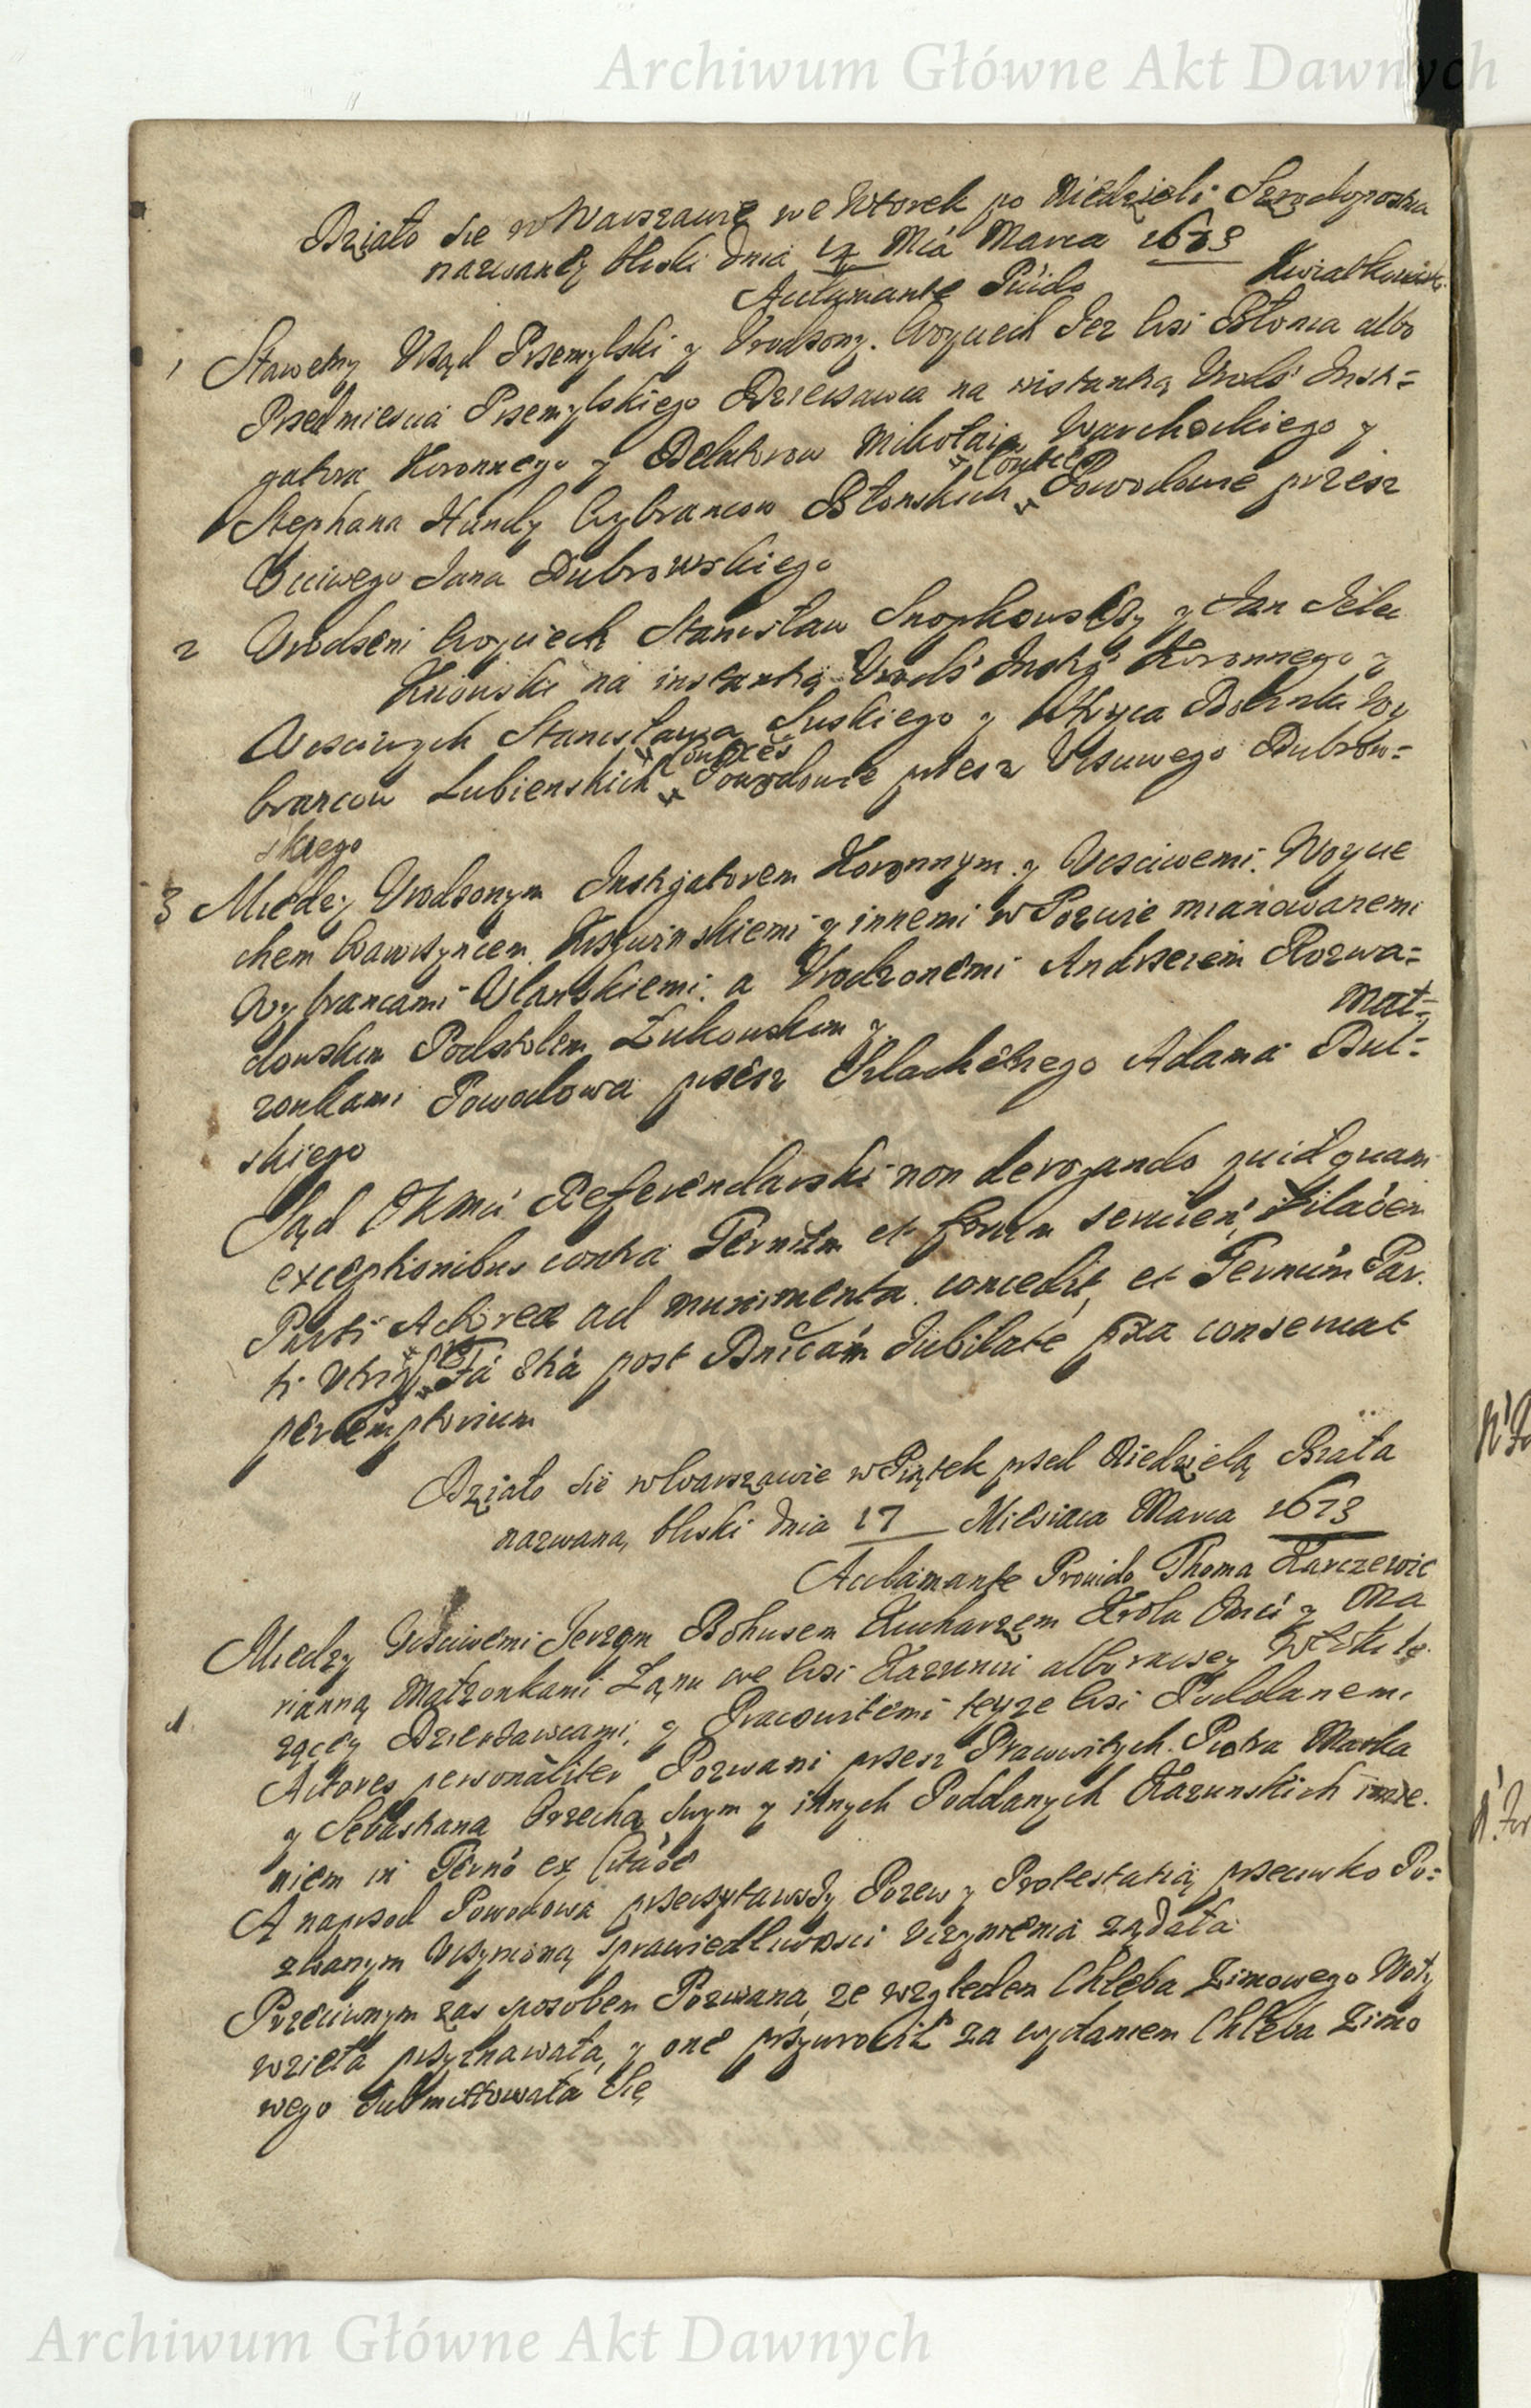 Archiwum Główne Akt Dawnych
Działo sie w Warszawie we Wtorek po Niedzieli Szrodoposтna
nazwaney bliski dnia 14 Mca Marca 1673
Acclamante Puido Kwiatkowski
1 Slawetny Urząd Przemyslski y Urodzony Woyciech Jez Wsi Błonia albo
Przedmiescia Przemyslskiego Dzierzawca na instantią Urodz Inst=
gatora Koronnego y Delatorow Mikołaia Warchockiego y
Stephana Hundy Wybrancow Błonskich Powodowie przez
Ucciwego Jana Dubrowskiego
2 Urodzeni Woyciech Stanisław Snopkowscy y Jan Jela
Kniowski na instantią Urodz Instig Koronnego y
Ucsciwych Stanisława Suskiego y Wy
brancow Lubienskich Powodowie przez Ucsciwego Dubrow=
skiego
3 Miedzy Urodzonym Instigatorem Koronnym y Ucsciwemi Woycie
chem Wawrzyncem y innemi w Pozwie mianowanemi
Wybrancami Ulanskiemi a Urodzonemi Andrzeiem Rozwa=
dowskim Podstolem Łukowskim y Mał=
zonkami Powodowa przez Szlachetnego Adama Dul=
skiego
Sąd JKMci Referendarski non derogando quidquam
exceptionibus contra Terminum et forum Dilaoem
Parti Actorea ad munimenta concedit, et Terminum Par
ti Utriq Fa 2da post Dnicam Jubilate pxa conservat
peremptorium
Działo sie w Warszawie w Piątek przed Niedzielą Biała
nazwana, bliski dnia 17 Miesiaca Marca 1673
Acclamante Prouido Thoma Karczewic
1 Miedzy Ucsciwemi Jerzym Bohusem Kucharzem Krola Jmci y Ma
rianną Małzonkami Łanu we Wsi Kazuniu
Dzierzawcami, y Pracowitemi teyze Wsi Poddanemi
Actores personaliter Pozwani przez Pracowitych Piotra Marka
y Sebastiana Grzecha swym y innych Poddanych Kazunskich imie
niem in Termo ex Citaoe
A naprzod Powodowa przeczytawszy Pozew y Protestatią przeciwko Po=
zwanym Uczynioną sprawiedliwosci uczynienia ządała
Przeciwnym zas sposobem Pozwana, ze względem Chleba Zimowego Woły
wzieła przyznawała, y one przywrocic za wydaniem Chleba Zimo
wego Submittowała Się
Archiwum Główne Akt Dawnych